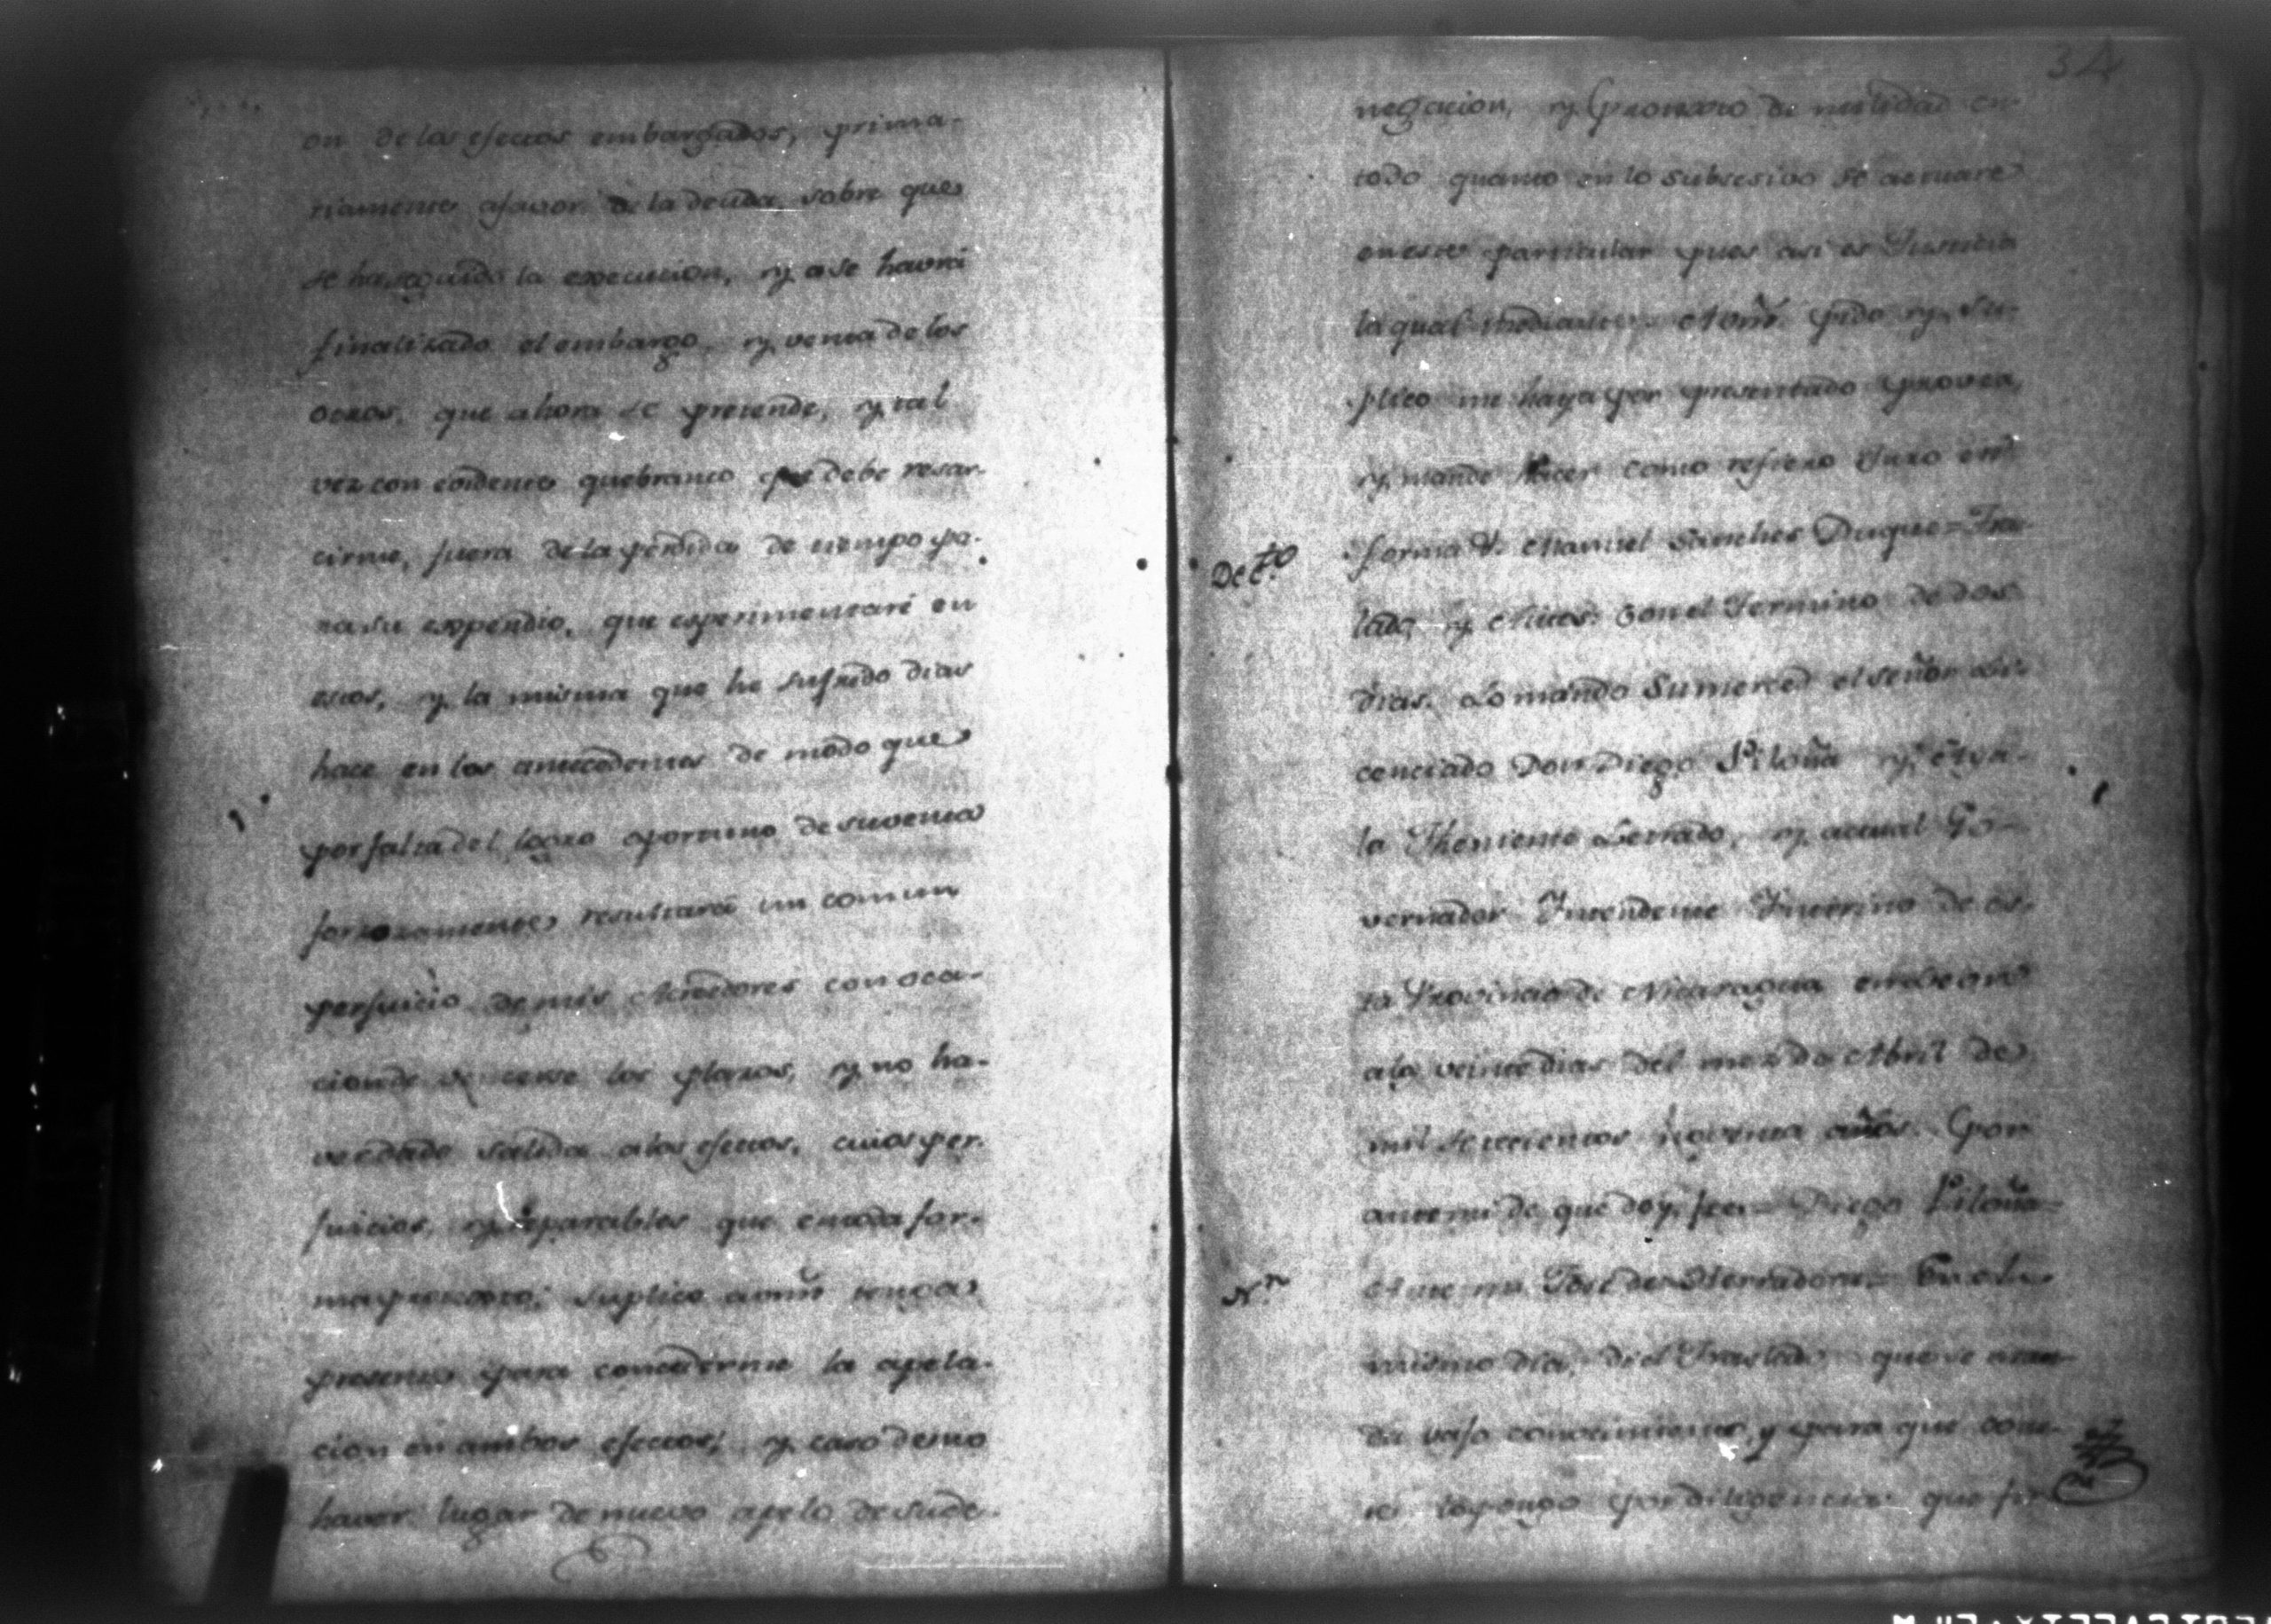 on de los efectos embargados, prima-
riamente afavor de la deuda sobre que
se ha seguido la execucion, y a se havrá
finalizado el embargo, y venta de los
otros, que ahora se pretende, y tal
vez con evidente quebranto que debe resar-
cirme, fuera de la perdida de tiempo pa-
ra su expendio, que esperimentaré en
estos, y la misma que he sufrido dias
hace en los antecedentes de modo que
por falta del logro oportuno de su venta
forzozamente resultará un comun
perjuicio de mis Acreedores con oca-
cion de ser los plazos, y no ha-
verdado salida a los efectos, cuios per-
juicios, y reparables que en toda for-
ma protesto; suplico aumd tenga
presente para concederme la apela-
cion en ambos efectos; y caso de no
haver lugar de nuevo apelo de su de-
34
negacion, y protexto de nulidad en
todo quanto en lo subsesivo se actuare
en este particular pues asi es Justicia
la qual mediante Aumd. pido y su-
plico me haya por presentado provea,
y mande hacer como refiero Juro en
forma V. Manuel Sanches Duque = Tras-
Decto
lado, y Autos: con el Termino de dos
dias. Lo mando Sumerced el señor Li-
cenciado Don Diego Piloña y Aya-
la Theniente Letrado, y actual Go-
vernador Intendente Interino de es-
ta Provincia de Nicaragua en Leon
a los veinte dias del mez de Abril de
mil setecientos noventa años. Por
antemi de que doy fee. = Diego Piloña =
Nn
Ante mi. José de Herradora = En el
mismo dia, di el Traslado que se man-
da vajo conocimiento, y para que cons-
te lo pongo por diligencia que fir